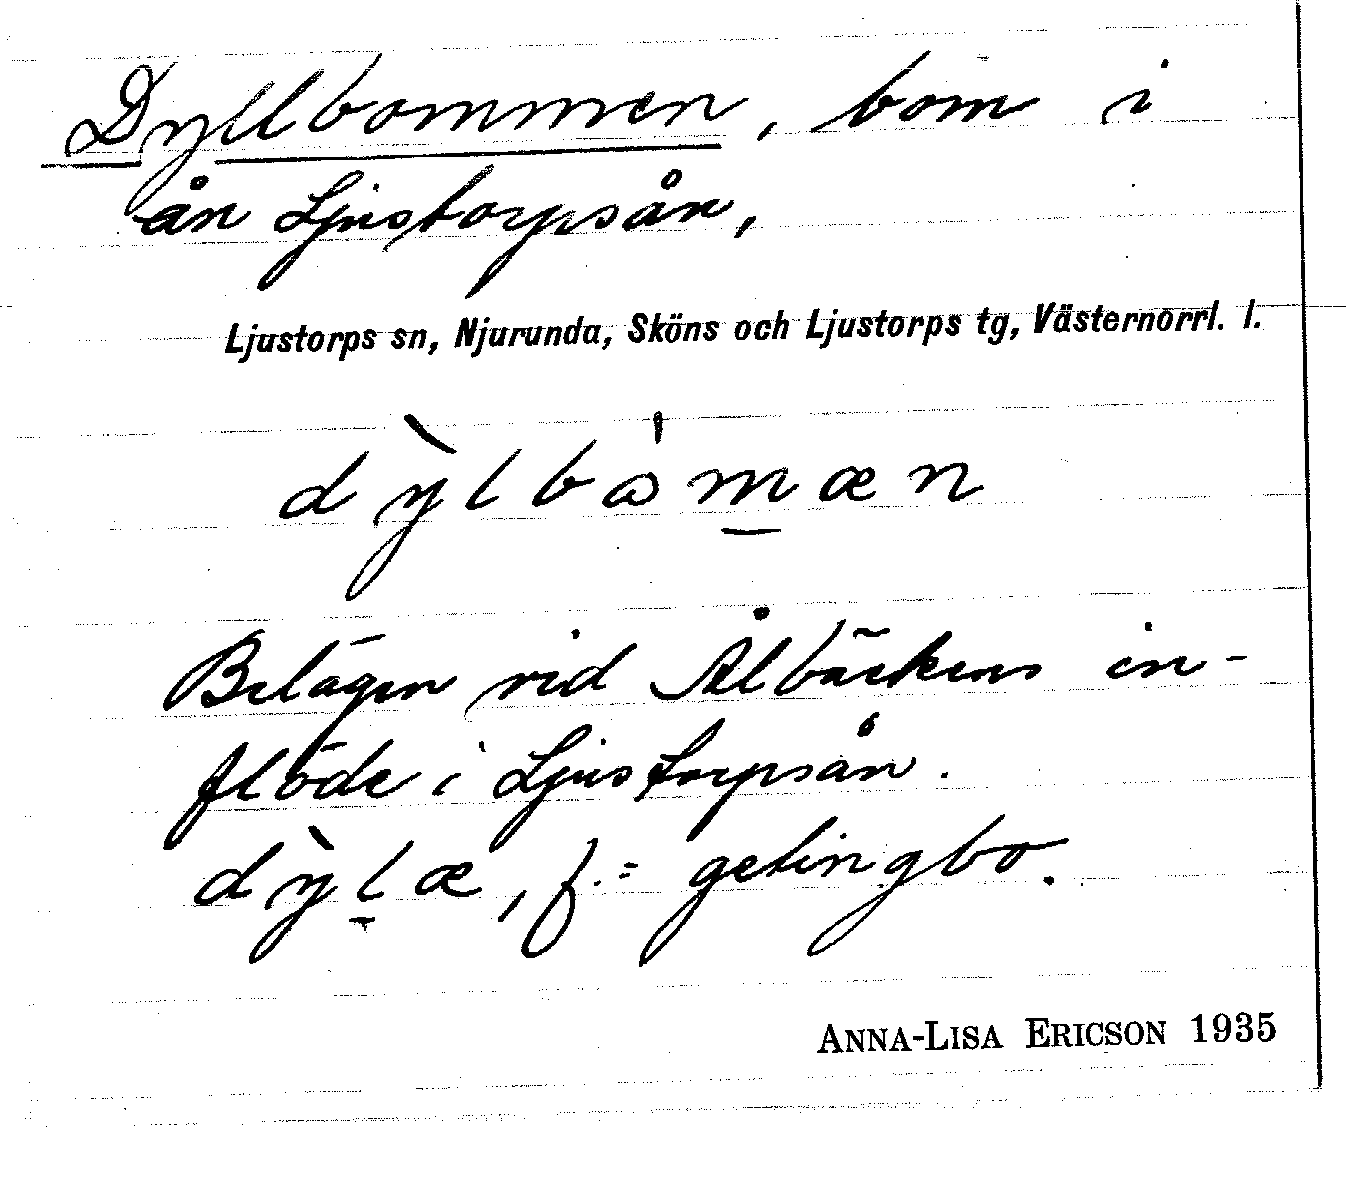 Dyllbommen, bom i
ån Ljustorpsån,
Ljustorps sn, Njurunda, Sköns och Ljustorps tg, Västernorrl. l.
dỳlbå̍m̲æn
Belägen vid Ålbäckens in-
flöde i Ljustorpsån.
dỳl̲æ, f. = getingbo.
ANNA-LISA ERICSON 1935